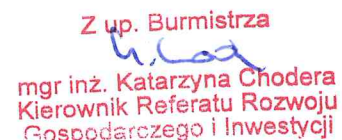 Z up. Burmistrza
mgr inż. Katarzyna Chodera
Kierownik Referatu Rozwoju
Gospodarczego i Inwestycji